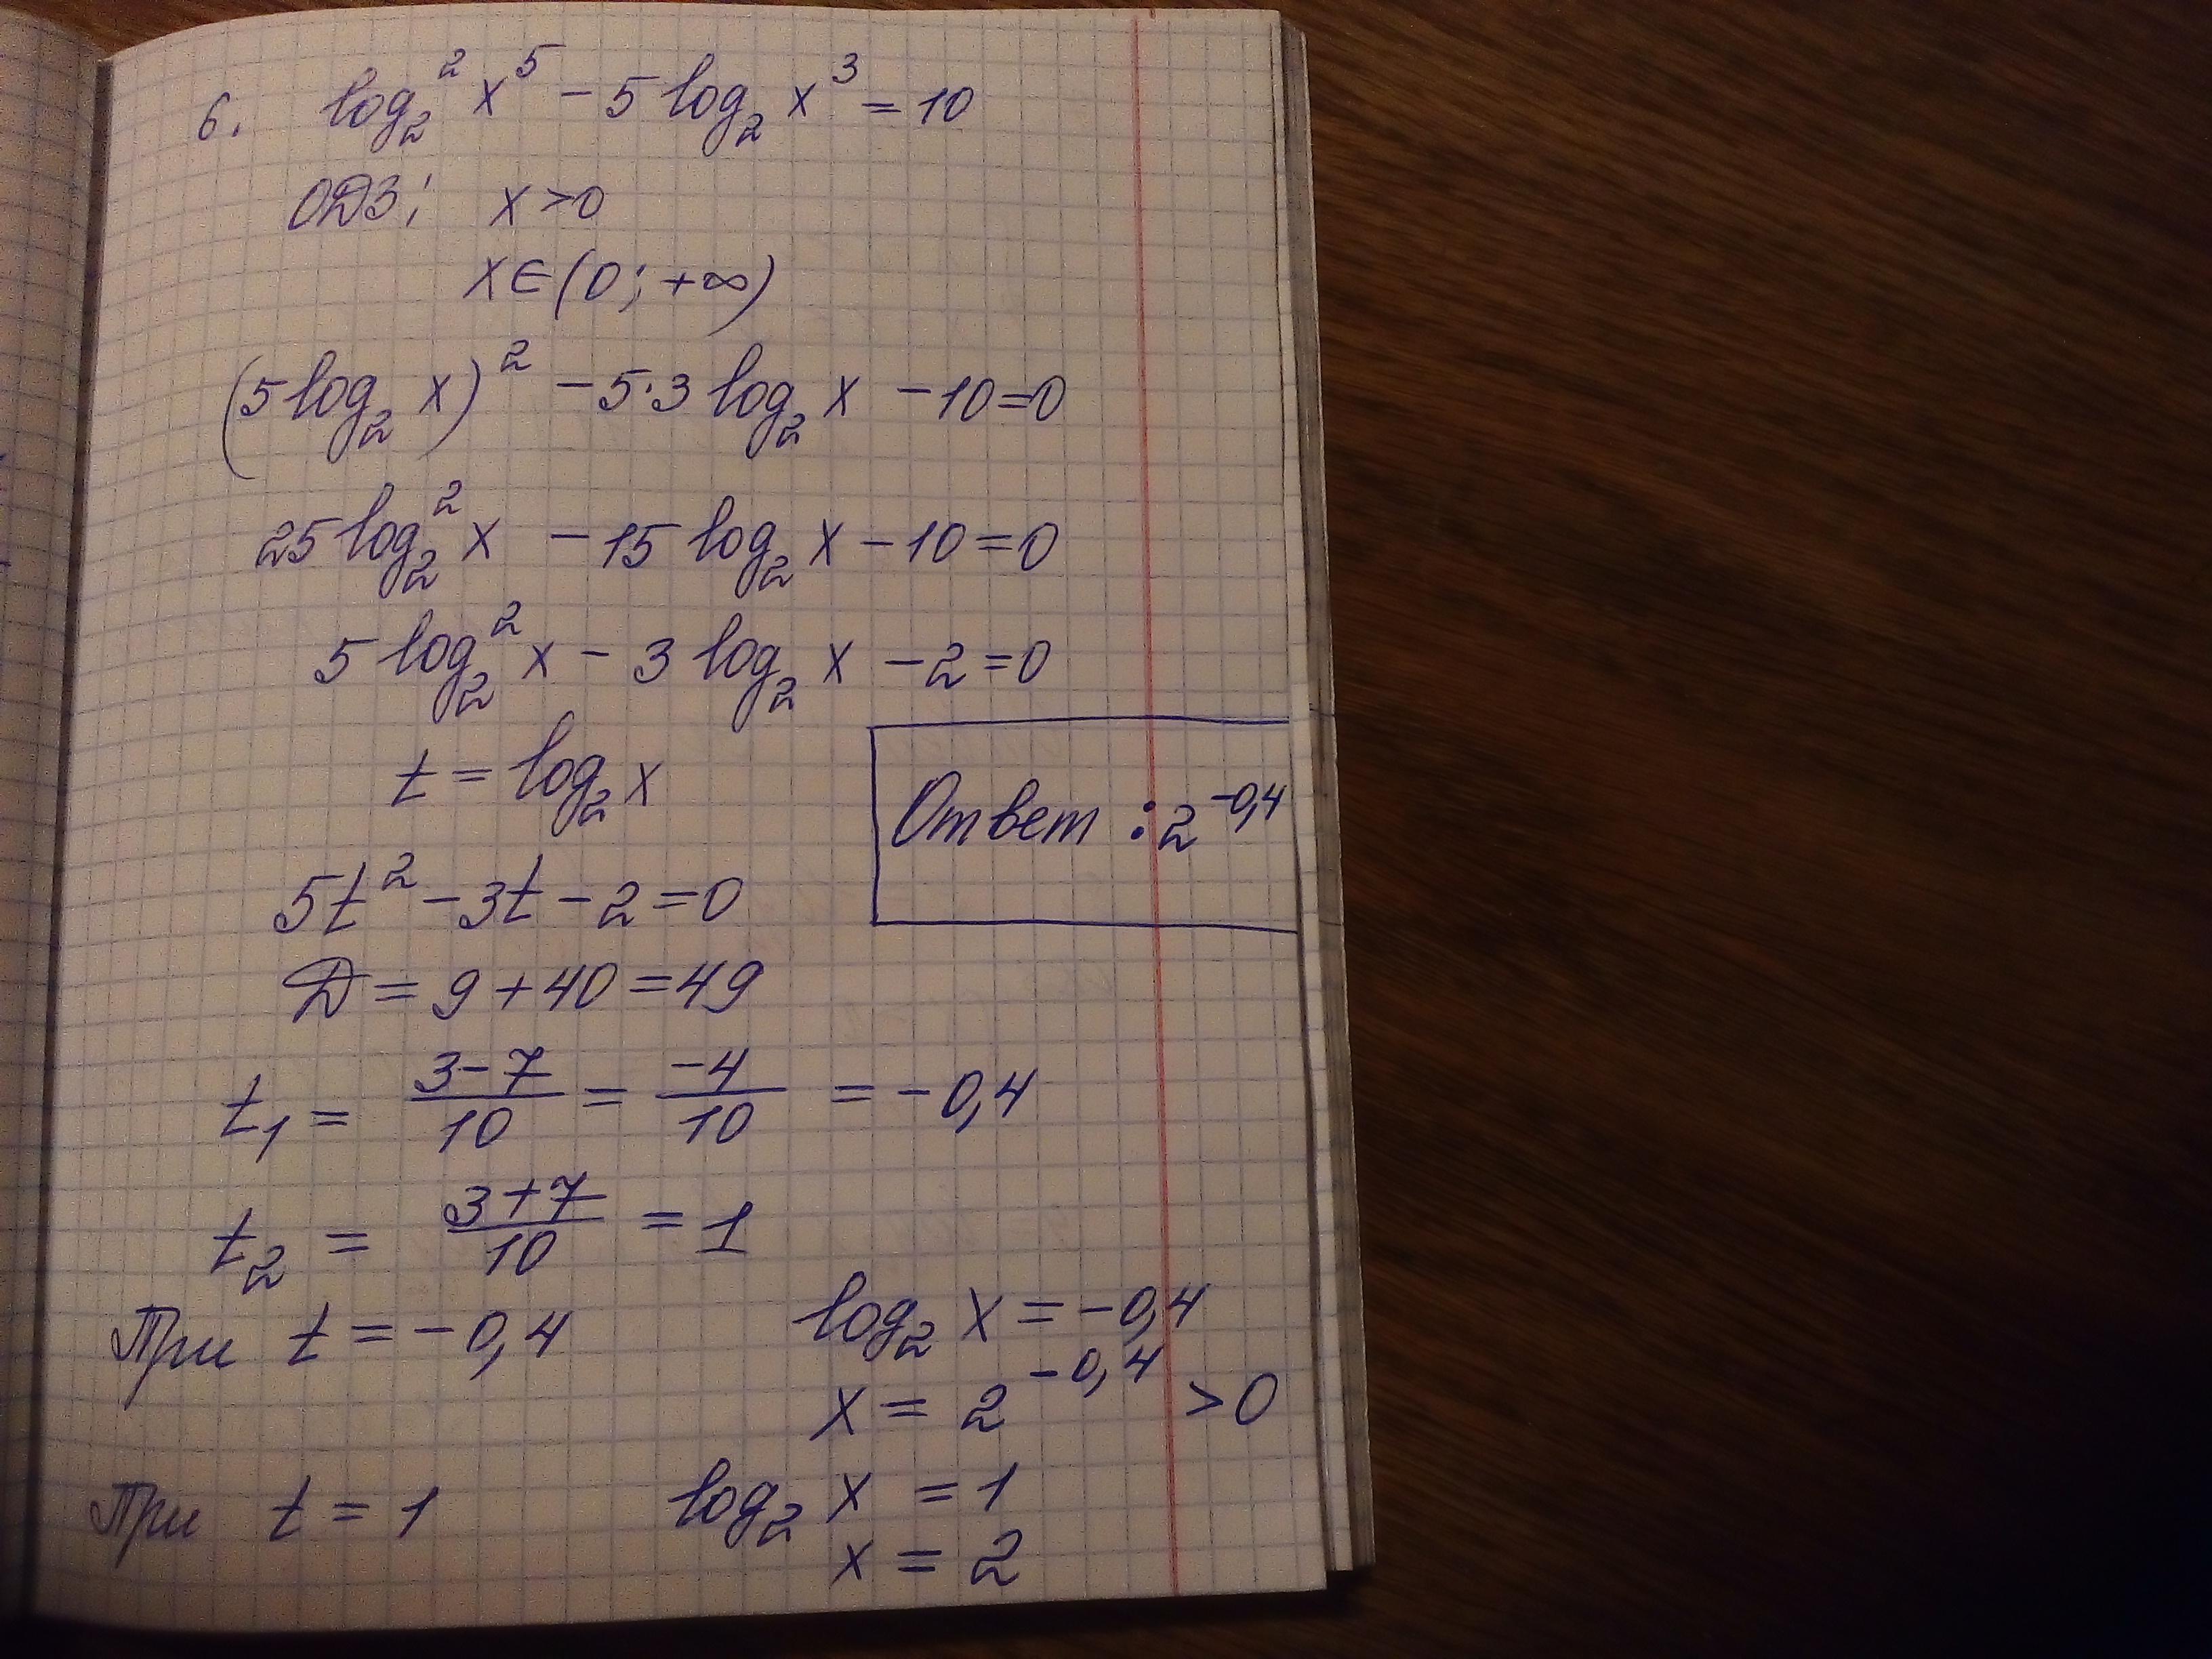 6. log₂² x⁵ – 5 log₂ x³ = 10
ОДЗ: x > 0
x ∈ (0; +∞)
(5 log₂ x)² – 5·3 log₂ x – 10 = 0
25 log₂² x – 15 log₂ x – 10 = 0
5 log₂² x – 3 log₂ x – 2 = 0
t = log₂ x
Ответ : 2^(-0,4)
5t² – 3t – 2 = 0
Д = 9 + 40 = 49
t₁ = (3-7)/10 = (-4)/10 = -0,4
t₂ = (3+7)/10 = 1
При t = -0,4 log₂ x = -0,4
x = 2^(-0,4) > 0
При t = 1 log₂ x = 1
x = 2